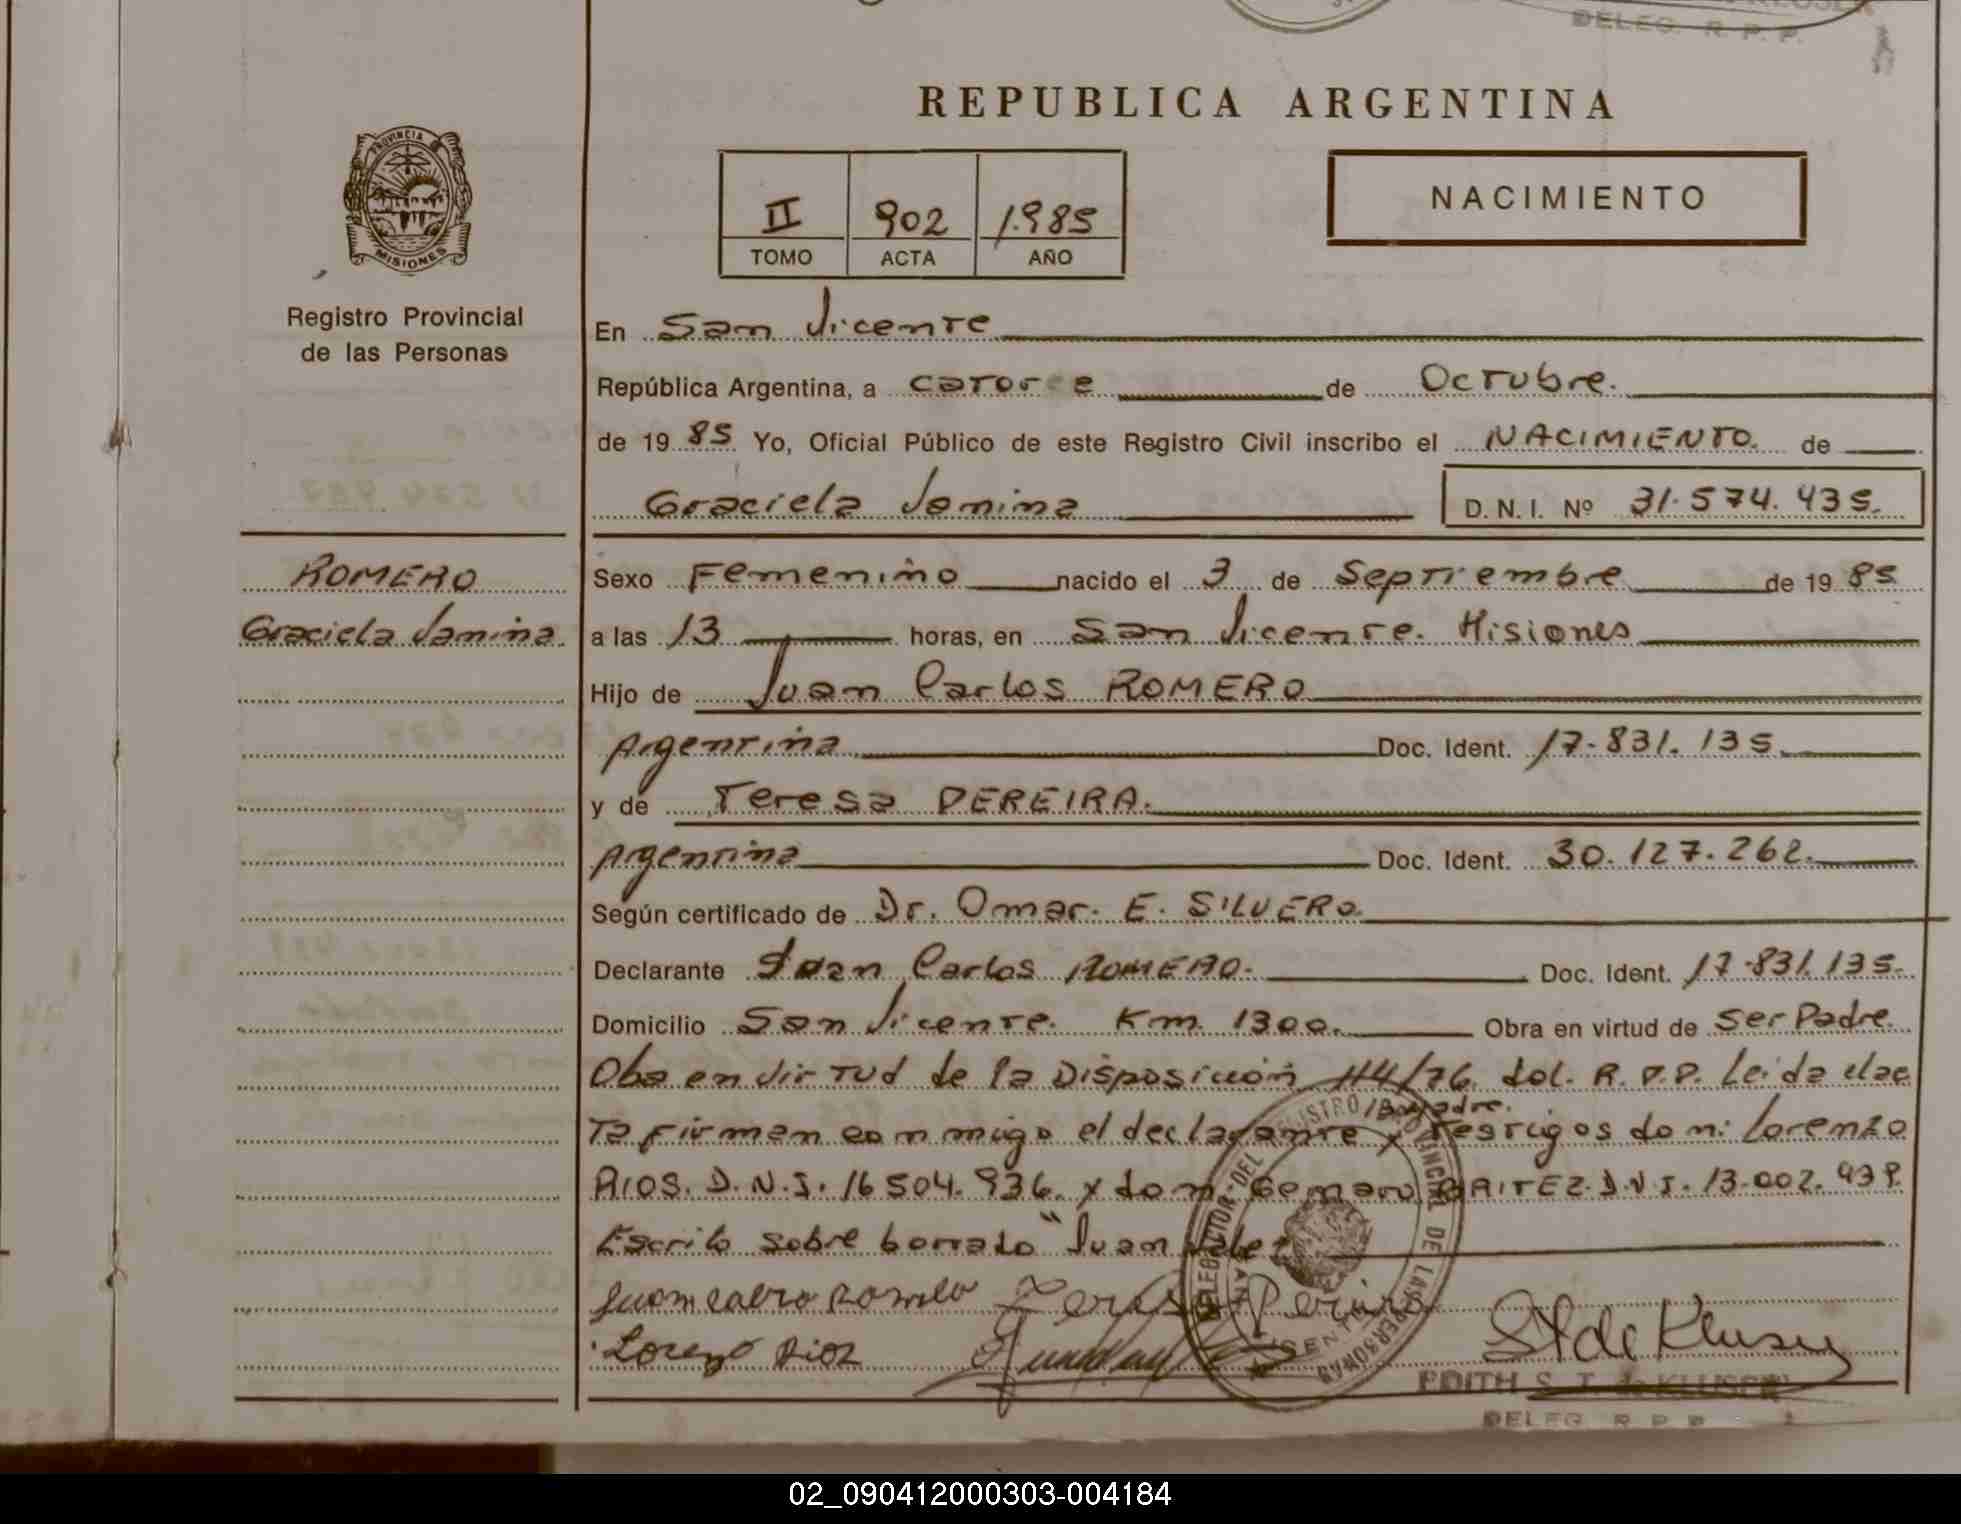 DELEG. R. P. P.
REPUBLICA ARGENTINA
PROVINCIA
MISIONES
II 902 1.985
TOMO ACTA AÑO
NACIMIENTO
Registro Provincial
de las Personas
En San Vicente
República Argentina, a catorce de Octubre.
de 19 85 Yo, Oficial Público de este Registro Civil inscribo el NACIMIENTO. de
Graciela Janina D. N. I. Nº 31.574.435.
ROMERO
Graciela Janina.
Sexo Femenino nacido el 3 de Septiembre de 19 85
a las 13 horas, en San Vicente. Misiones
Hijo de Juan Carlos ROMERO
Argentina Doc. Ident. 17.831.135.
y de Teresa PEREIRA.
Argentina Doc. Ident. 30.127.262.
Según certificado de Dr. Omar. E. SILVERO.
Declarante Juan Carlos ROMERO. Doc. Ident. 17.831.135.
Domicilio San Vicente. Km. 1300. Obra en virtud de ser Padre.
en virtud de la Disposición 114/76. del. R.P.P. Leida el ac
la madre.
ta firman conmigo el declarante y testigos don: Lorenzo
RIOS. D.N.I. 16504.936. y don BRITEZ. D.N.I. 13.002.939.
Escrito sobre borrado "Juan
Lorenzo Rios
EDITH S. T. de KLUSER
DELEG. R. P. P.
02_090412000303-004184